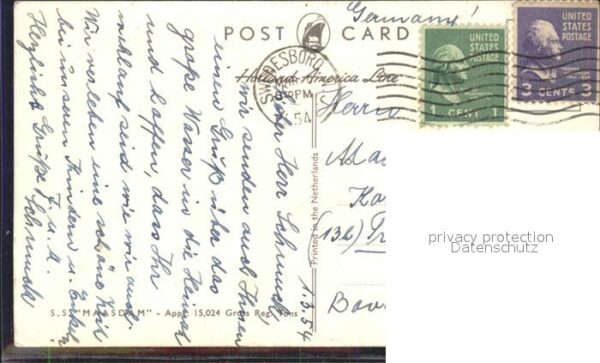 Germany!
POST CARD
UNITED STATES POSTAGE
1 CENT 1
UNITED STATES POSTAGE
3 CENTS 3
SWEDESBORO
PM
54
Holland-America Line
1.3.54
Lieber Herr Schmuck!
Wir senden auch Ihnen
einen Gruß über das
große Wasser in die Heimat
und hoffen, dass Ihr
wohlauf sind wie wir auch.
Wir verleben eine schöne Zeit
bei unseren Kindern u. Enkeln
Herzlichst Grüße J. u. M.
Schmuck
Herrn
(13b)
Printed in the Netherlands
S.S. "MAASDAM" - Appr. 15,024 Gross Reg. Tons
privacy protection
Datenschutz